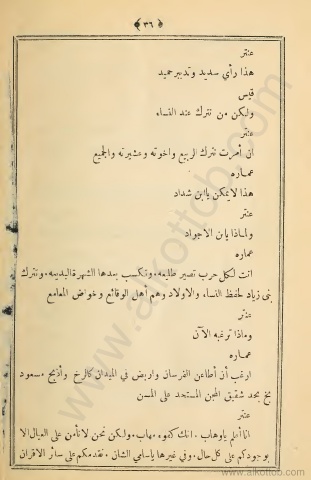 ﴿ ٣٦ ﴾
عنتر
هذا رأي سديد وتدبير حميد
قيس
ولكن من نترك عند النساء
عنتر
ان أمرت نترك الربيع واخوته وعشيرته والجميع
عماره
هذا لا يمكن ياابن شداد
عنتر
ولماذا يابن الاجواد
عماره
انت لكل حرب تصير طليعه. وتكسب بعدها الشهرة البديعه. ونترك
بني زياد لحفظ النساء والاولاد وهم أهل الوقائع وخواض المعامع
عنتر
وماذا ترغبه الآن
عماره
ارغب أن أطاعن الفرسان واربض في الميدان كالرخ وأذبح مسعود
بخ بحد شقيق المجن المستحد على المسن
عنتر
انا أعلم ياوهاب. انك كفوء مهاب. ولكن نحن لا نأمن على العيال الا
بوجودكم على كل حال. وفي غيرها ياسامي الشان. نقدمكم على سائر الاقران
www.alkottob.com
www.alkottob.com